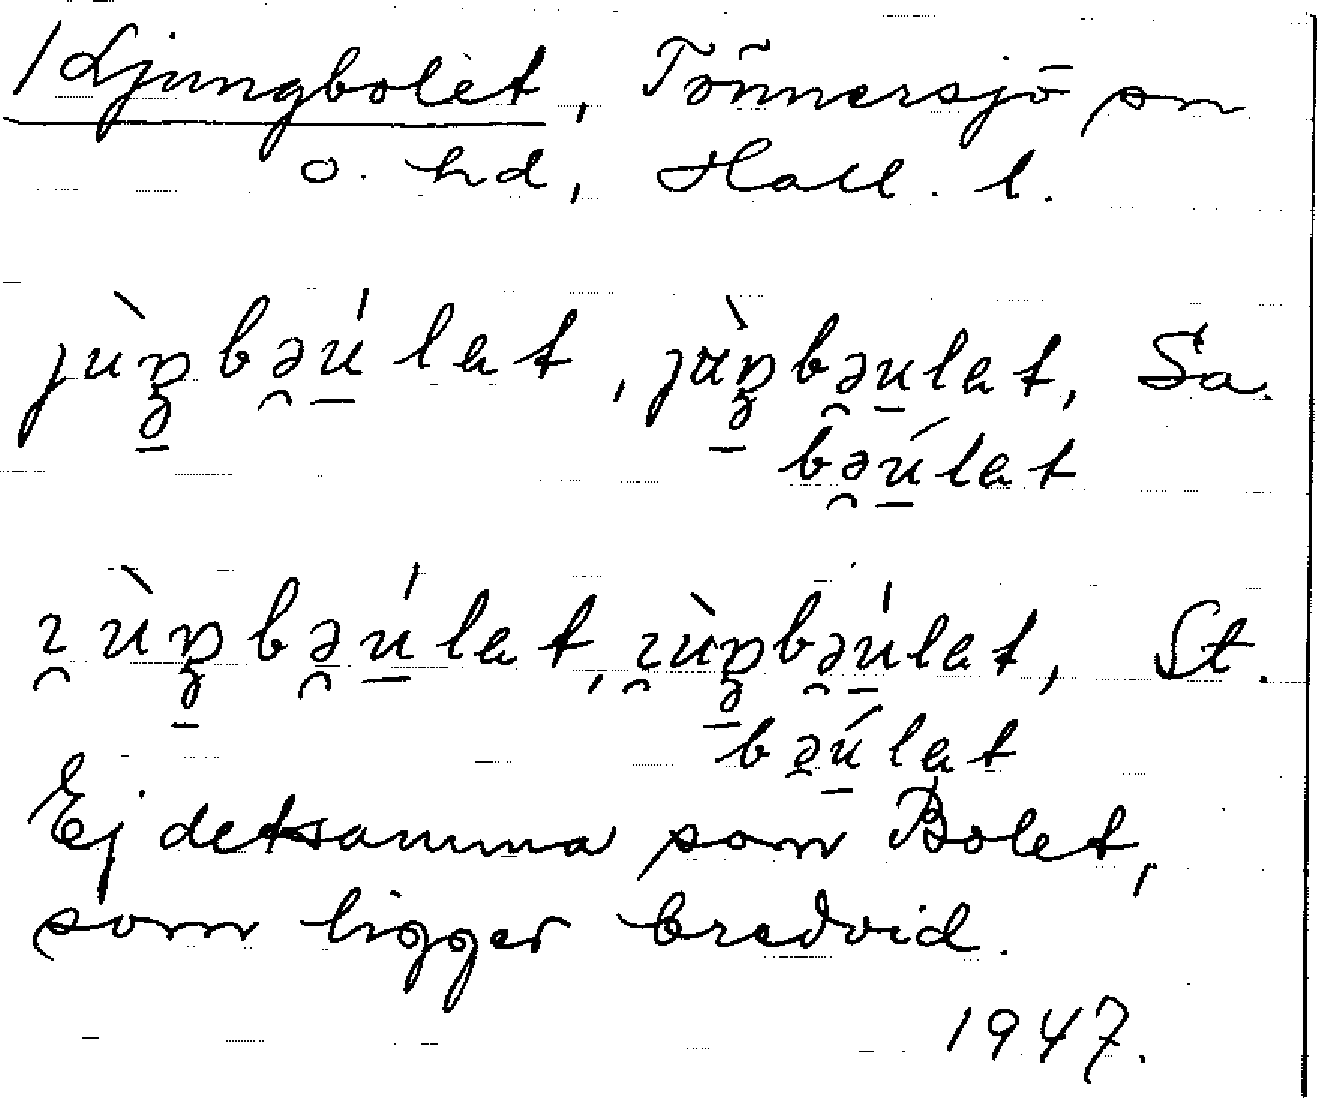 /Ljungbolet, Tönnersjö sn
o. hd, Hall. l.
jùŋbə̯ú̠lat, jùŋbə̯u̠lat, Sa.
bə̯ú̠lat
ɀ̯ùŋbə̯ú̠lat, ɀ̯ùŋbə̯ú̠lat, St.
bə̯ú̠lat
Ej detsamma som Bolet,
som ligger bredvid.
1947.